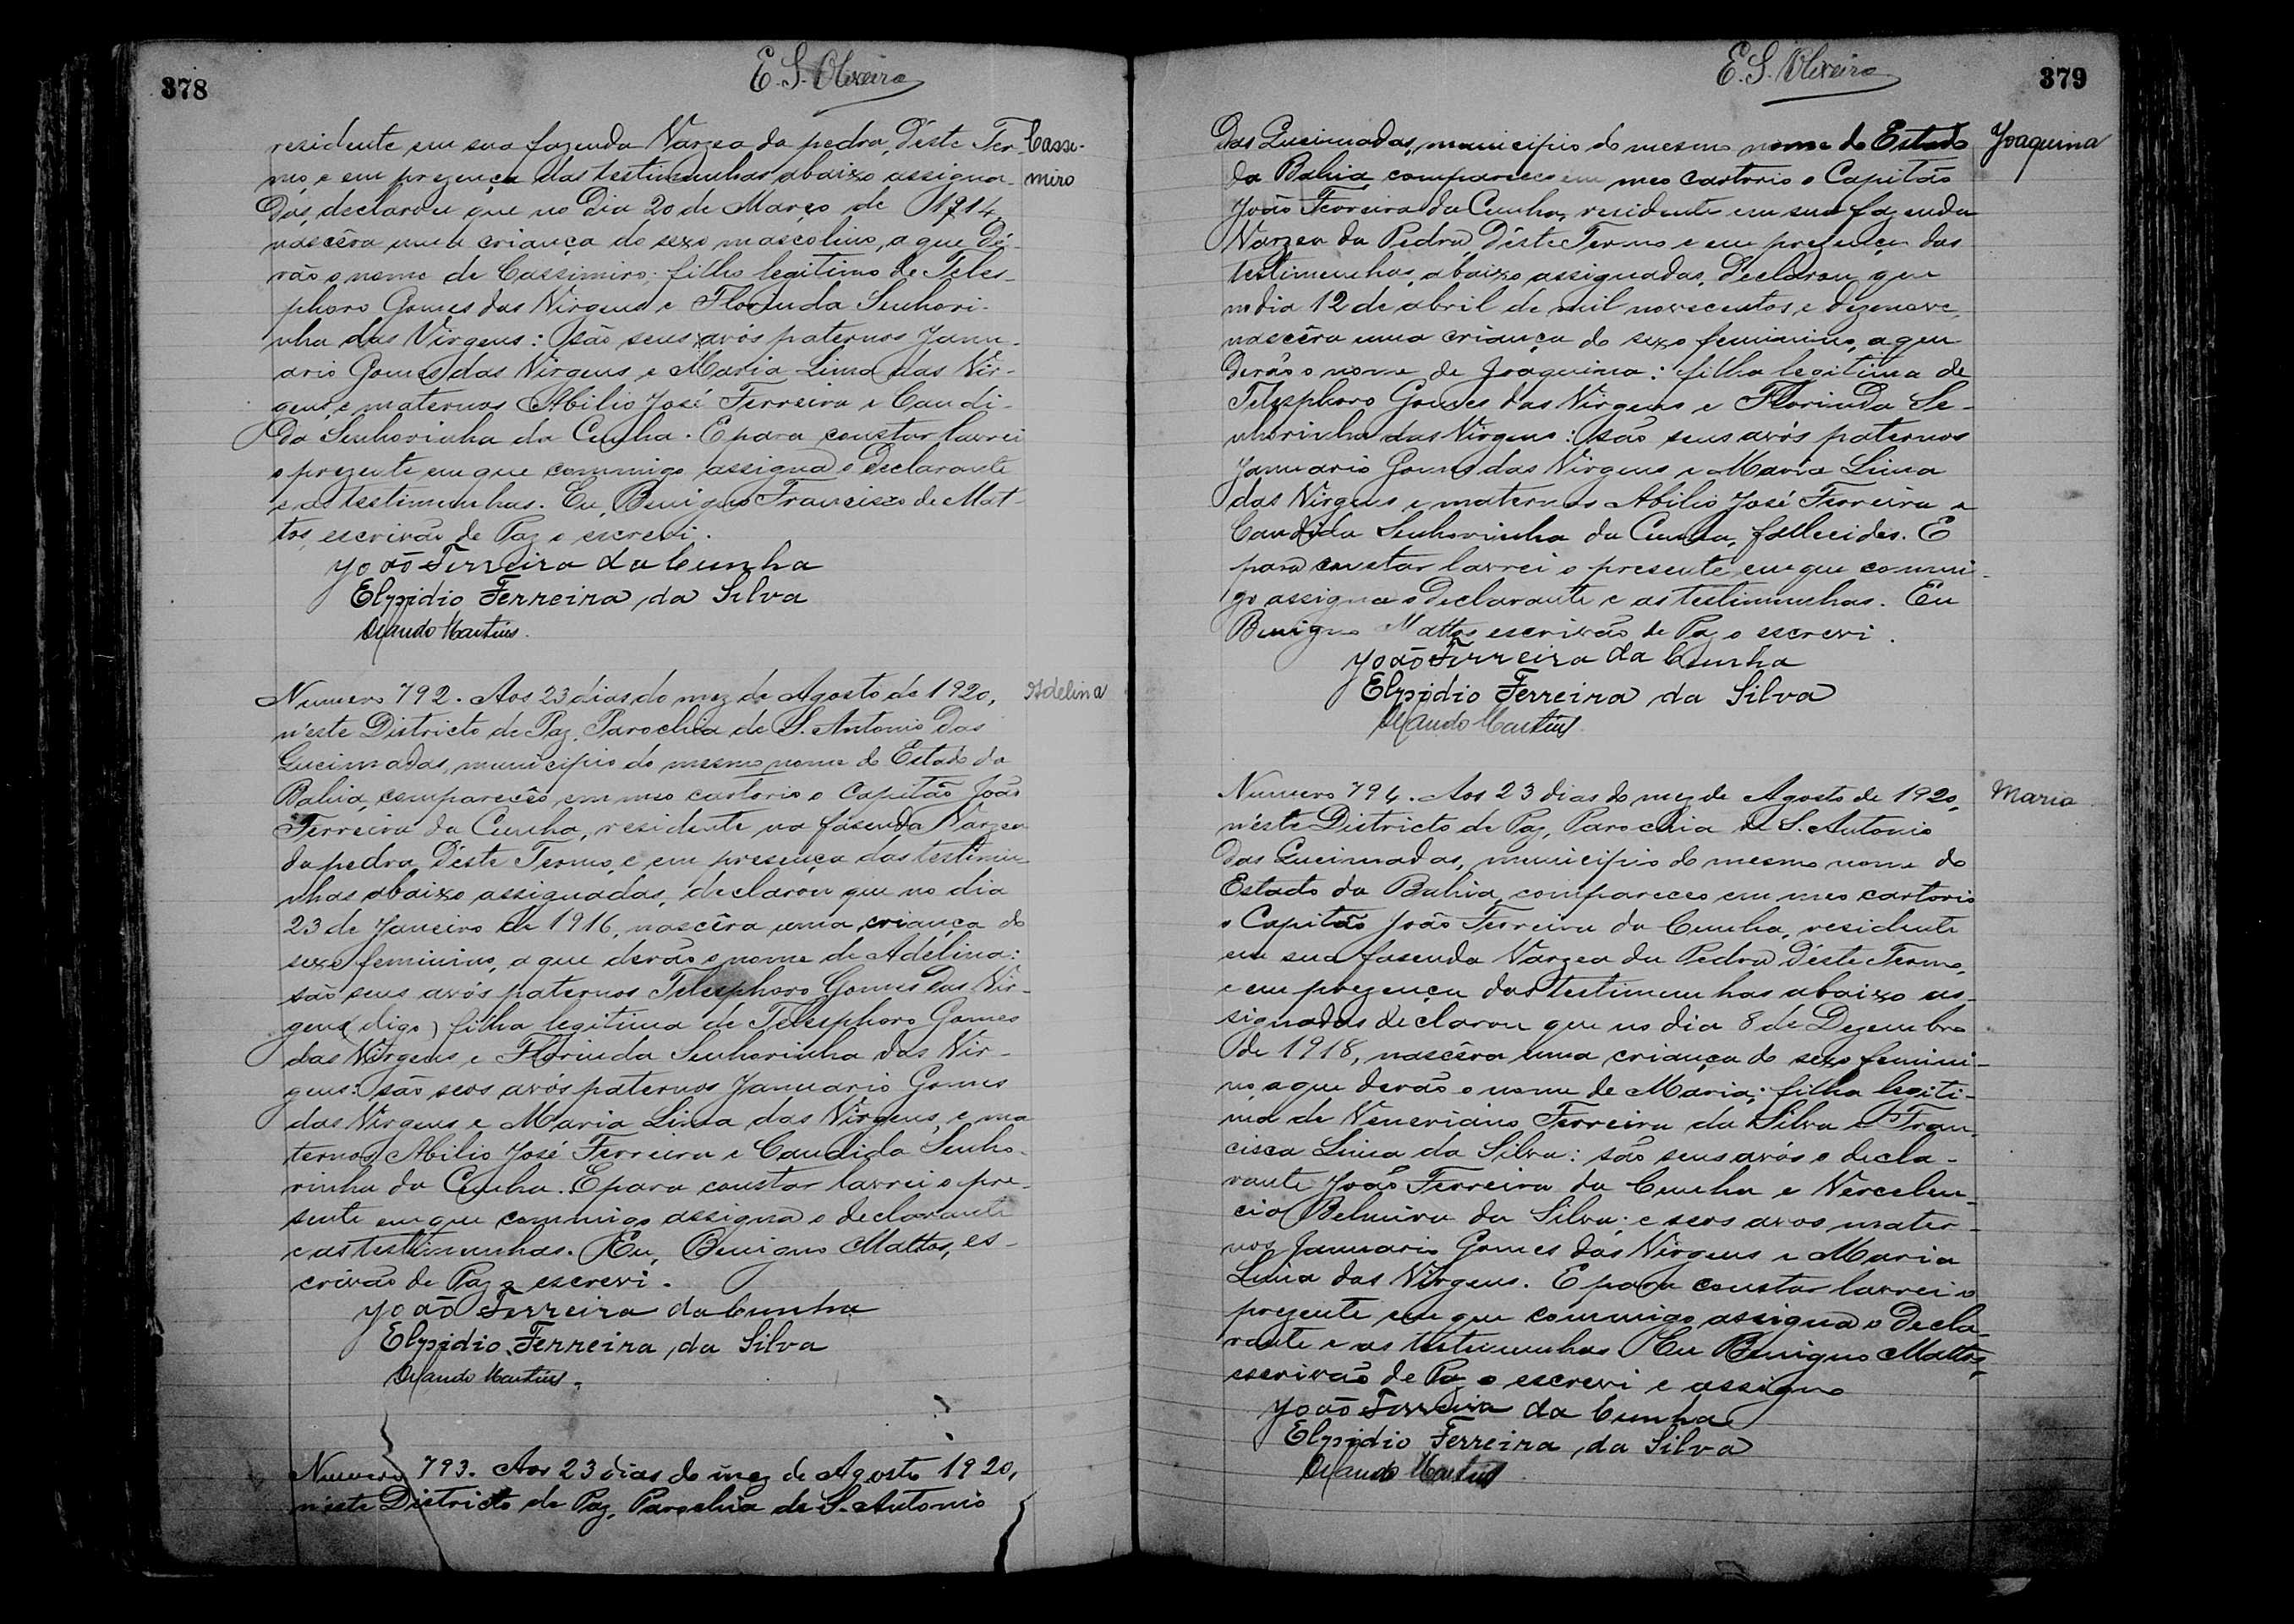 378
E. S. Oliveira
residente em sua fazenda Varzea da pedra, d'éste Ter-
Cassi-
mo, e em prezença das testimunhas abaixo assigna-
miro
das, declarou que no dia 20 de Março de 1914,
nascêra uma criança do sexo mascolino, a que de-
rão o nome de Cassimiro; filho legitimo de Teles-
phoro Gomes das Virgens e Florinda Senhori-
nha das Virgens: são seus avós paternos Janu-
ario Gomes das Virgens e Maria Lima das Vir-
gens, e maternos Abilio José Ferreira e Candi-
da Senhorinha da Cunha. E para constar lavrei
o prezente em que commigo assigna o declarante
e as testimunhas. Eu, Benigno Francisco de Mat-
tos, escrivão de Paz o escrevi.
João Ferreira da Cunha
Elpidio Ferreira da Silva
Martins.
Numero 792. Aos 23 dias do mez de Agosto de 1920,
Adelina
n'éste Districto de Paz, Parochia de S. Antonio das
Queimadas, municipio do mesmo nome do Estado da
Bahia, compareceo em meo cartorio o Capitão João
Ferreira da Cunha, residente na fasenda Varzea
da pedra, d'éste Termo, e em presença das testimu-
nhas abaixo assignadas, declarou que no dia
23 de Janeiro de 1916, nascêra uma criança do
sexo feminino, a que derão o nome de Adelina:
são seus avós paternos Telesphoro Gomes das Vir-
gens (digo) filha legitima de Telesphoro Gomes
das Virgens e Florinda Senhorinha das Vir-
gens: são seos avós paternos Januario Gomes
das Virgens e Maria Lima das Virgens, e ma
ternos Abilio José Ferreira e Candida Senho-
rinha da Cunha. E para constar lavrei o pre-
sente em que commigo assigna o declarante
e as testimunhas. Eu, Benigno Mattos, es-
crivão de Paz o escrevi.
João Ferreira da Cunha
Elpidio Ferreira da Silva
Martins.
Numero 793. Aos 23 dias do mez de Agosto 1920,
n'éste Districto de Paz, Parochia de S. Antonio
E. S. Oliveira
379
das Queimadas, municipio do mesmo nome do Estado
Joaquina
da Bahia, compareceo em meo cartorio o Capitão
João Ferreira da Cunha, residente em sua fazenda
Varzea da Pedra, d'éste Termo e em prezença das
testimunhas, abaixo assignadas, declarou que
no dia 12 de abril de mil novecentos e dezenove,
nascêra uma criança do sexo feminino, a que
derão o nome de Joaquina: filha legitima de
Telesphoro Gomes das Virgens e Florinda Se-
nhorinha das Virgens: são seus avós paternos
Januario Gomes das Virgens e Maria Lima
das Virgens e maternos Abilio José Ferreira e
Candida Senhorinha da Cunha, fallecidos. E
para constar lavrei o presente, em que commi-
go assigna o declarante e as testimunhas. Eu
Benigno Mattos escrivão de Paz o escrevi.
João Ferreira da Cunha
Elpidio Ferreira da Silva
Martins
Numero 794. Aos 23 dias do mez de Agosto de 1920,
Maria
n'éste Districto de Paz, Parochia de S. Antonio
das Queimadas, municipio do mesmo nome do
Estado da Bahia, compareceo em meo cartorio
o Capitão João Ferreira da Cunha, residente
em sua fasenda Varzea da Pedra, d'éste Termo,
e em prezença das testimunhas abaixo as-
signadas declarou que no dia 8 de Dezembro
de 1918, nascêra uma criança do sexo femini-
no, a que derão o nome de Maria; filha legiti-
ma de Veneriano Ferreira da Silva e Fran-
cisca Lima da Silva: são seus avós o decla-
rante João Ferreira da Cunha e Vercelen-
cia Belmira da Silva: e seos avos mater-
nos Januario Gomes das Virgens e Maria
Lima das Virgens. E para constar lavrei o
prezente em que commigo assigna o decla-
rante e as testimunhas. Eu Benigno Mattos,
escrivão de Paz o escrevi e assigno
João Ferreira da Cunha
Elpidio Ferreira da Silva
Martins